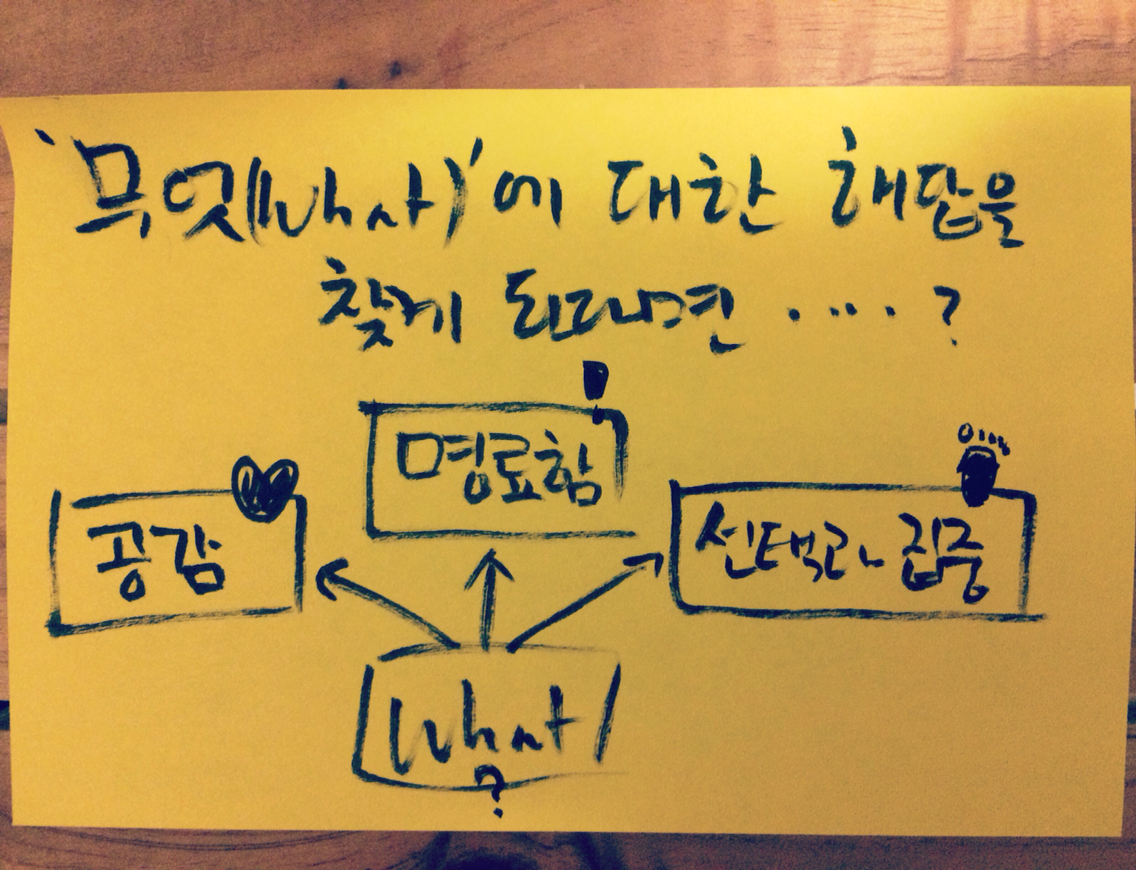 '무엇(What)'에 대한 해답을
찾게 된다면 ····?
명료함
공감
선택과 집중
What
?